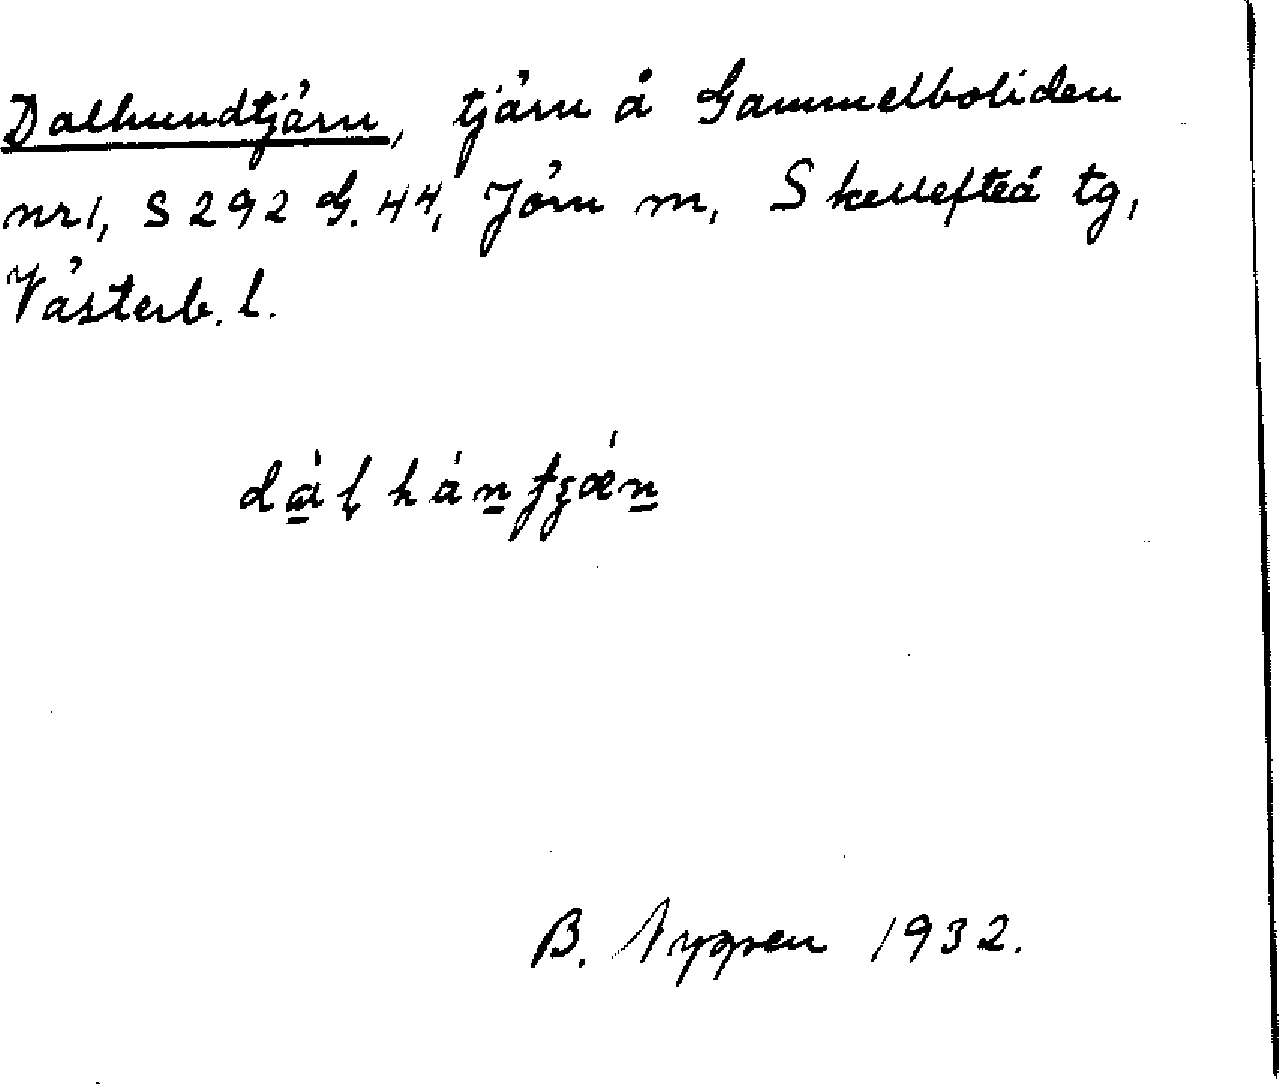 Dalhundtjärn, tjärn å Gammelboliden
nr 1, S 292 G. 44, Jörn m, Skellefteå tg,
Västerb. l.
B. Nygren 1932.